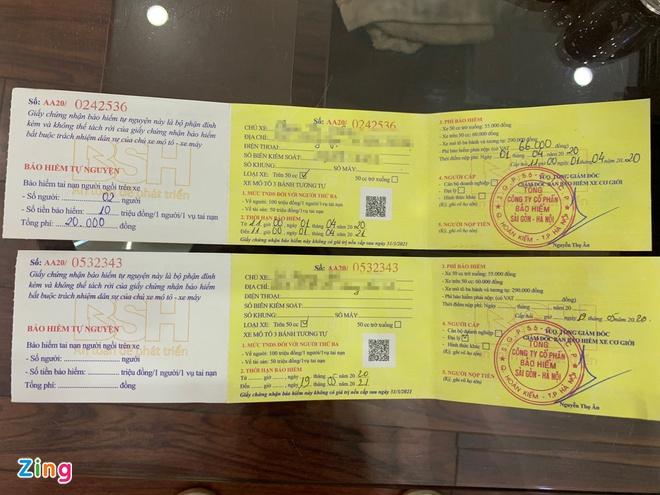 Số: AA20/ 0242536
Giấy chứng nhận bảo hiểm tự nguyện này là bộ phận đính
kèm và không thể tách rời của giấy chứng nhận bảo hiểm
bắt buộc trách nhiệm dân sự của chủ xe mô tô - xe máy
BSH
BẢO HIỂM TỰ NGUYỆN
Bảo hiểm tai nạn người ngồi trên xe
- Số người: 02 người
- Số tiền bảo hiểm: 10 triệu đồng/1 người/1 vụ tai nạn
Tổng phí: 20.000 đồng
Số: AA20/ 0242536
CHỦ XE:
ĐỊA CHỈ:
ĐIỆN THOẠI:
SỐ BIỂN KIỂM SOÁT:
SỐ KHUNG: SỐ MÁY:
LOẠI XE: Trên 50 cc 50 cc trở xuống
XE MÔ TÔ 3 BÁNH TƯƠNG TỰ
1. MỨC TNDS ĐỐI VỚI NGƯỜI THỨ BA
- Về người: 100 triệu đồng/1 người/1 vụ tai nạn
- Về tài sản: 50 triệu đồng/1 vụ tai nạn
2. THỜI HẠN BẢO HIỂM
Từ 11 giờ 00, ngày 01 tháng 04 năm 2020
Đến 11 giờ 00, ngày 01 tháng 04 năm 2021
Giấy chứng nhận bảo hiểm này không có giá trị nếu cấp sau ngày 31/5/2021
3. PHÍ BẢO HIỂM
- Xe 50 cc trở xuống: 55.000 đồng
- Xe trên 50 cc: 60.000 đồng
- Xe mô tô ba bánh và tương tự: 290.000 đồng
- Phí bảo hiểm phải nộp: (có VAT 66.000 đồng)
Thời điểm nộp phí: ngày 01 tháng 04 năm 2020
Cấp hồi 11 giờ 00 ngày 01/04/2020
4. NGƯỜI CẤP
- Cán bộ doanh nghiệp
- Đại lý
- Hình thức khác
(Ký, ghi rõ họ tên)
5. NGƯỜI NỘP TIỀN
(Ký, ghi rõ họ tên)
TUQ. TỔNG GIÁM ĐỐC
GIÁM ĐỐC BAN BẢO HIỂM XE CƠ GIỚI
TỔNG
CÔNG TY CỔ PHẦN
BẢO HIỂM
SÀI GÒN - HÀ NỘI
Q. HOÀN KIẾM - T.P HÀ NỘI
Nguyễn Thọ Ân
Số: AA20/ 0532343
Giấy chứng nhận bảo hiểm tự nguyện này là bộ phận đính
kèm và không thể tách rời của giấy chứng nhận bảo hiểm
bắt buộc trách nhiệm dân sự của chủ xe mô tô - xe máy
BSH
BẢO HIỂM TỰ NGUYỆN
An toàn để phát triển
Bảo hiểm tai nạn người ngồi trên xe
- Số người: người
- Số tiền bảo hiểm: triệu đồng/1 người/1 vụ tai nạn
Tổng phí: đồng
Số: AA20/ 0532343
CHỦ XE:
ĐỊA CHỈ:
ĐIỆN THOẠI:
SỐ BIỂN KIỂM SOÁT:
SỐ KHUNG: SỐ MÁY:
LOẠI XE: Trên 50 cc 50 cc trở xuống
XE MÔ TÔ 3 BÁNH TƯƠNG TỰ
1. MỨC TNDS ĐỐI VỚI NGƯỜI THỨ BA
- Về người: 100 triệu đồng/1 người/1 vụ tai nạn
- Về tài sản: 50 triệu đồng/1 vụ tai nạn
2. THỜI HẠN BẢO HIỂM
Từ giờ, ngày 19 tháng 05 năm 2020
Đến giờ, ngày 19 tháng 05 năm 2021
Giấy chứng nhận bảo hiểm này không có giá trị nếu cấp sau ngày 31/5/2021
3. PHÍ BẢO HIỂM
- Xe 50 cc trở xuống: 55.000 đồng
- Xe trên 50 cc: 60.000 đồng
- Xe mô tô ba bánh và tương tự: 290.000 đồng
- Phí bảo hiểm phải nộp: (có VAT đồng)
Thời điểm nộp phí: ngày tháng năm
Cấp hồi giờ, ngày 19 tháng 05 năm 2020
4. NGƯỜI CẤP
- Cán bộ doanh nghiệp
- Đại lý
- Hình thức khác
(Ký, ghi rõ họ tên)
5. NGƯỜI NỘP TIỀN
TUQ. TỔNG GIÁM ĐỐC
GIÁM ĐỐC BAN BẢO HIỂM XE CƠ GIỚI
TỔNG
CÔNG TY CỔ PHẦN
BẢO HIỂM
SÀI GÒN - HÀ NỘI
Q. HOÀN KIẾM - T.P HÀ NỘI
Nguyễn Thọ Ân
Zing